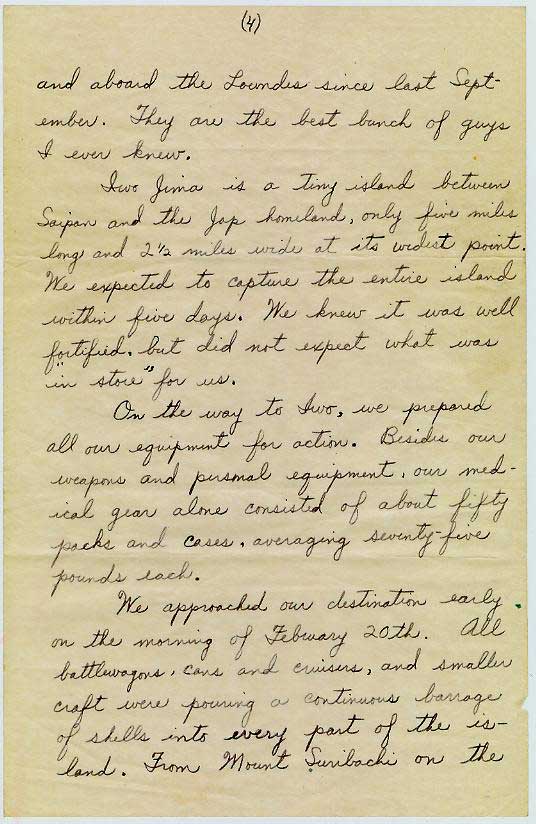 (4)
and aboard the Lowndes since last Sept-
ember. They are the best bunch of guys
I ever knew.
Iwo Jima is a tiny island between
Saipan and the Jap homeland, only five miles
long and 2 1/2 miles wide at its widest point.
We expected to capture the entire island
within five days. We knew it was well
fortified, but did not expect what was
"in store" for us.
On the way to Iwo, we prepared
all our equipment for action. Besides our
weapons and personal equipment, our med-
ical gear alone consisted of about fifty
packs and cases, averaging seventy-five
pounds each.
We approached our destination early
on the morning of February 20th. All
battlewagons, cans and cruisers, and smaller
craft were pouring a continuous barrage
of shells into every part of the is-
land. From Mount Suribachi on the